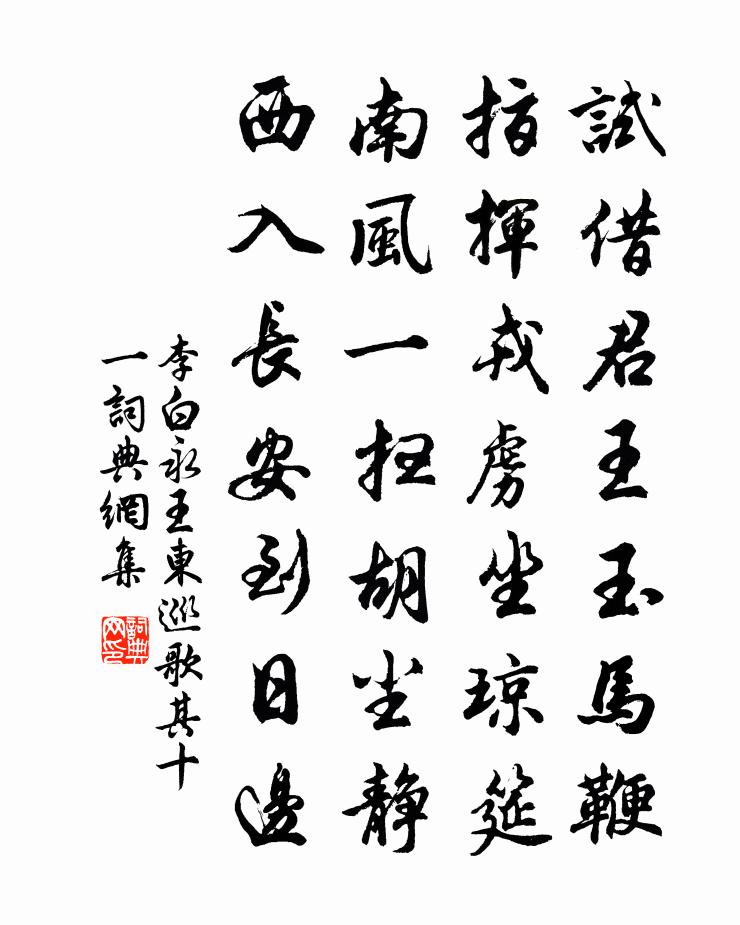 試借君王玉馬鞭
指揮戎虜坐瓊筵
南風一掃胡塵静
西入長安到日邊
李白永王東巡歌其十
一詞典網集
詞典网印